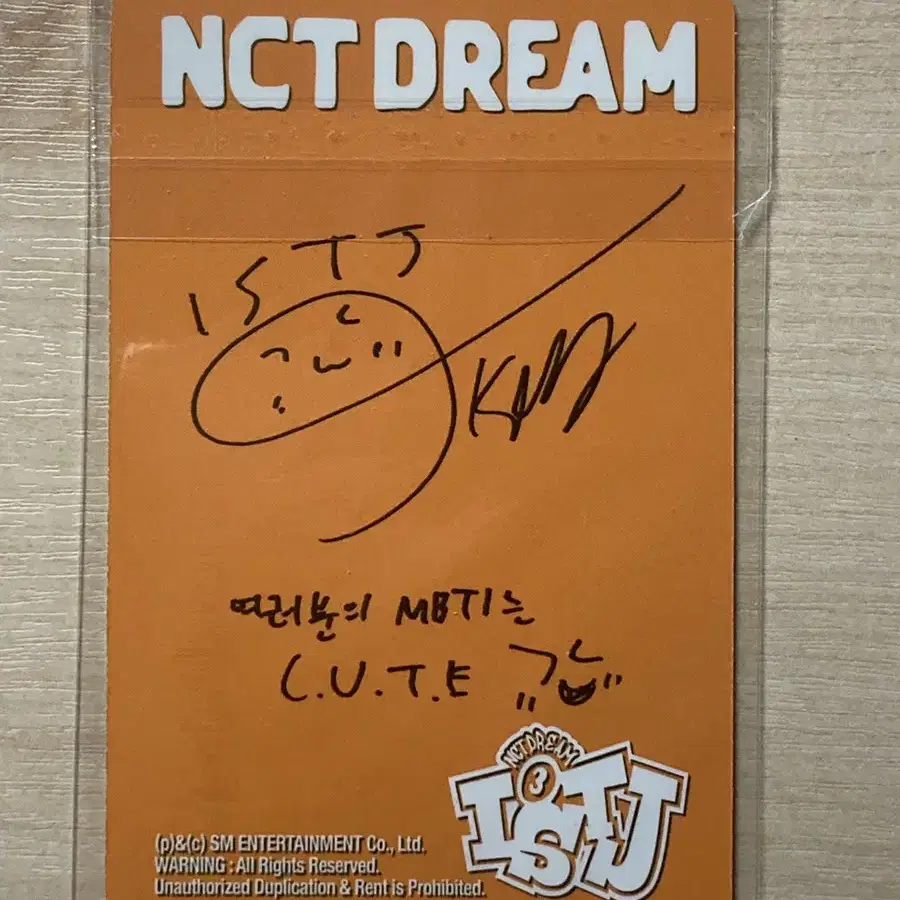 NCT DREAM
ISTJ
여러분의 MBTI는
C.U.T.E
NCT DREAM
3
ISTJ
(p)&(c) SM ENTERTAINMENT Co., Ltd.
WARNING : All Rights Reserved.
Unauthorized Duplication & Rent is Prohibited.